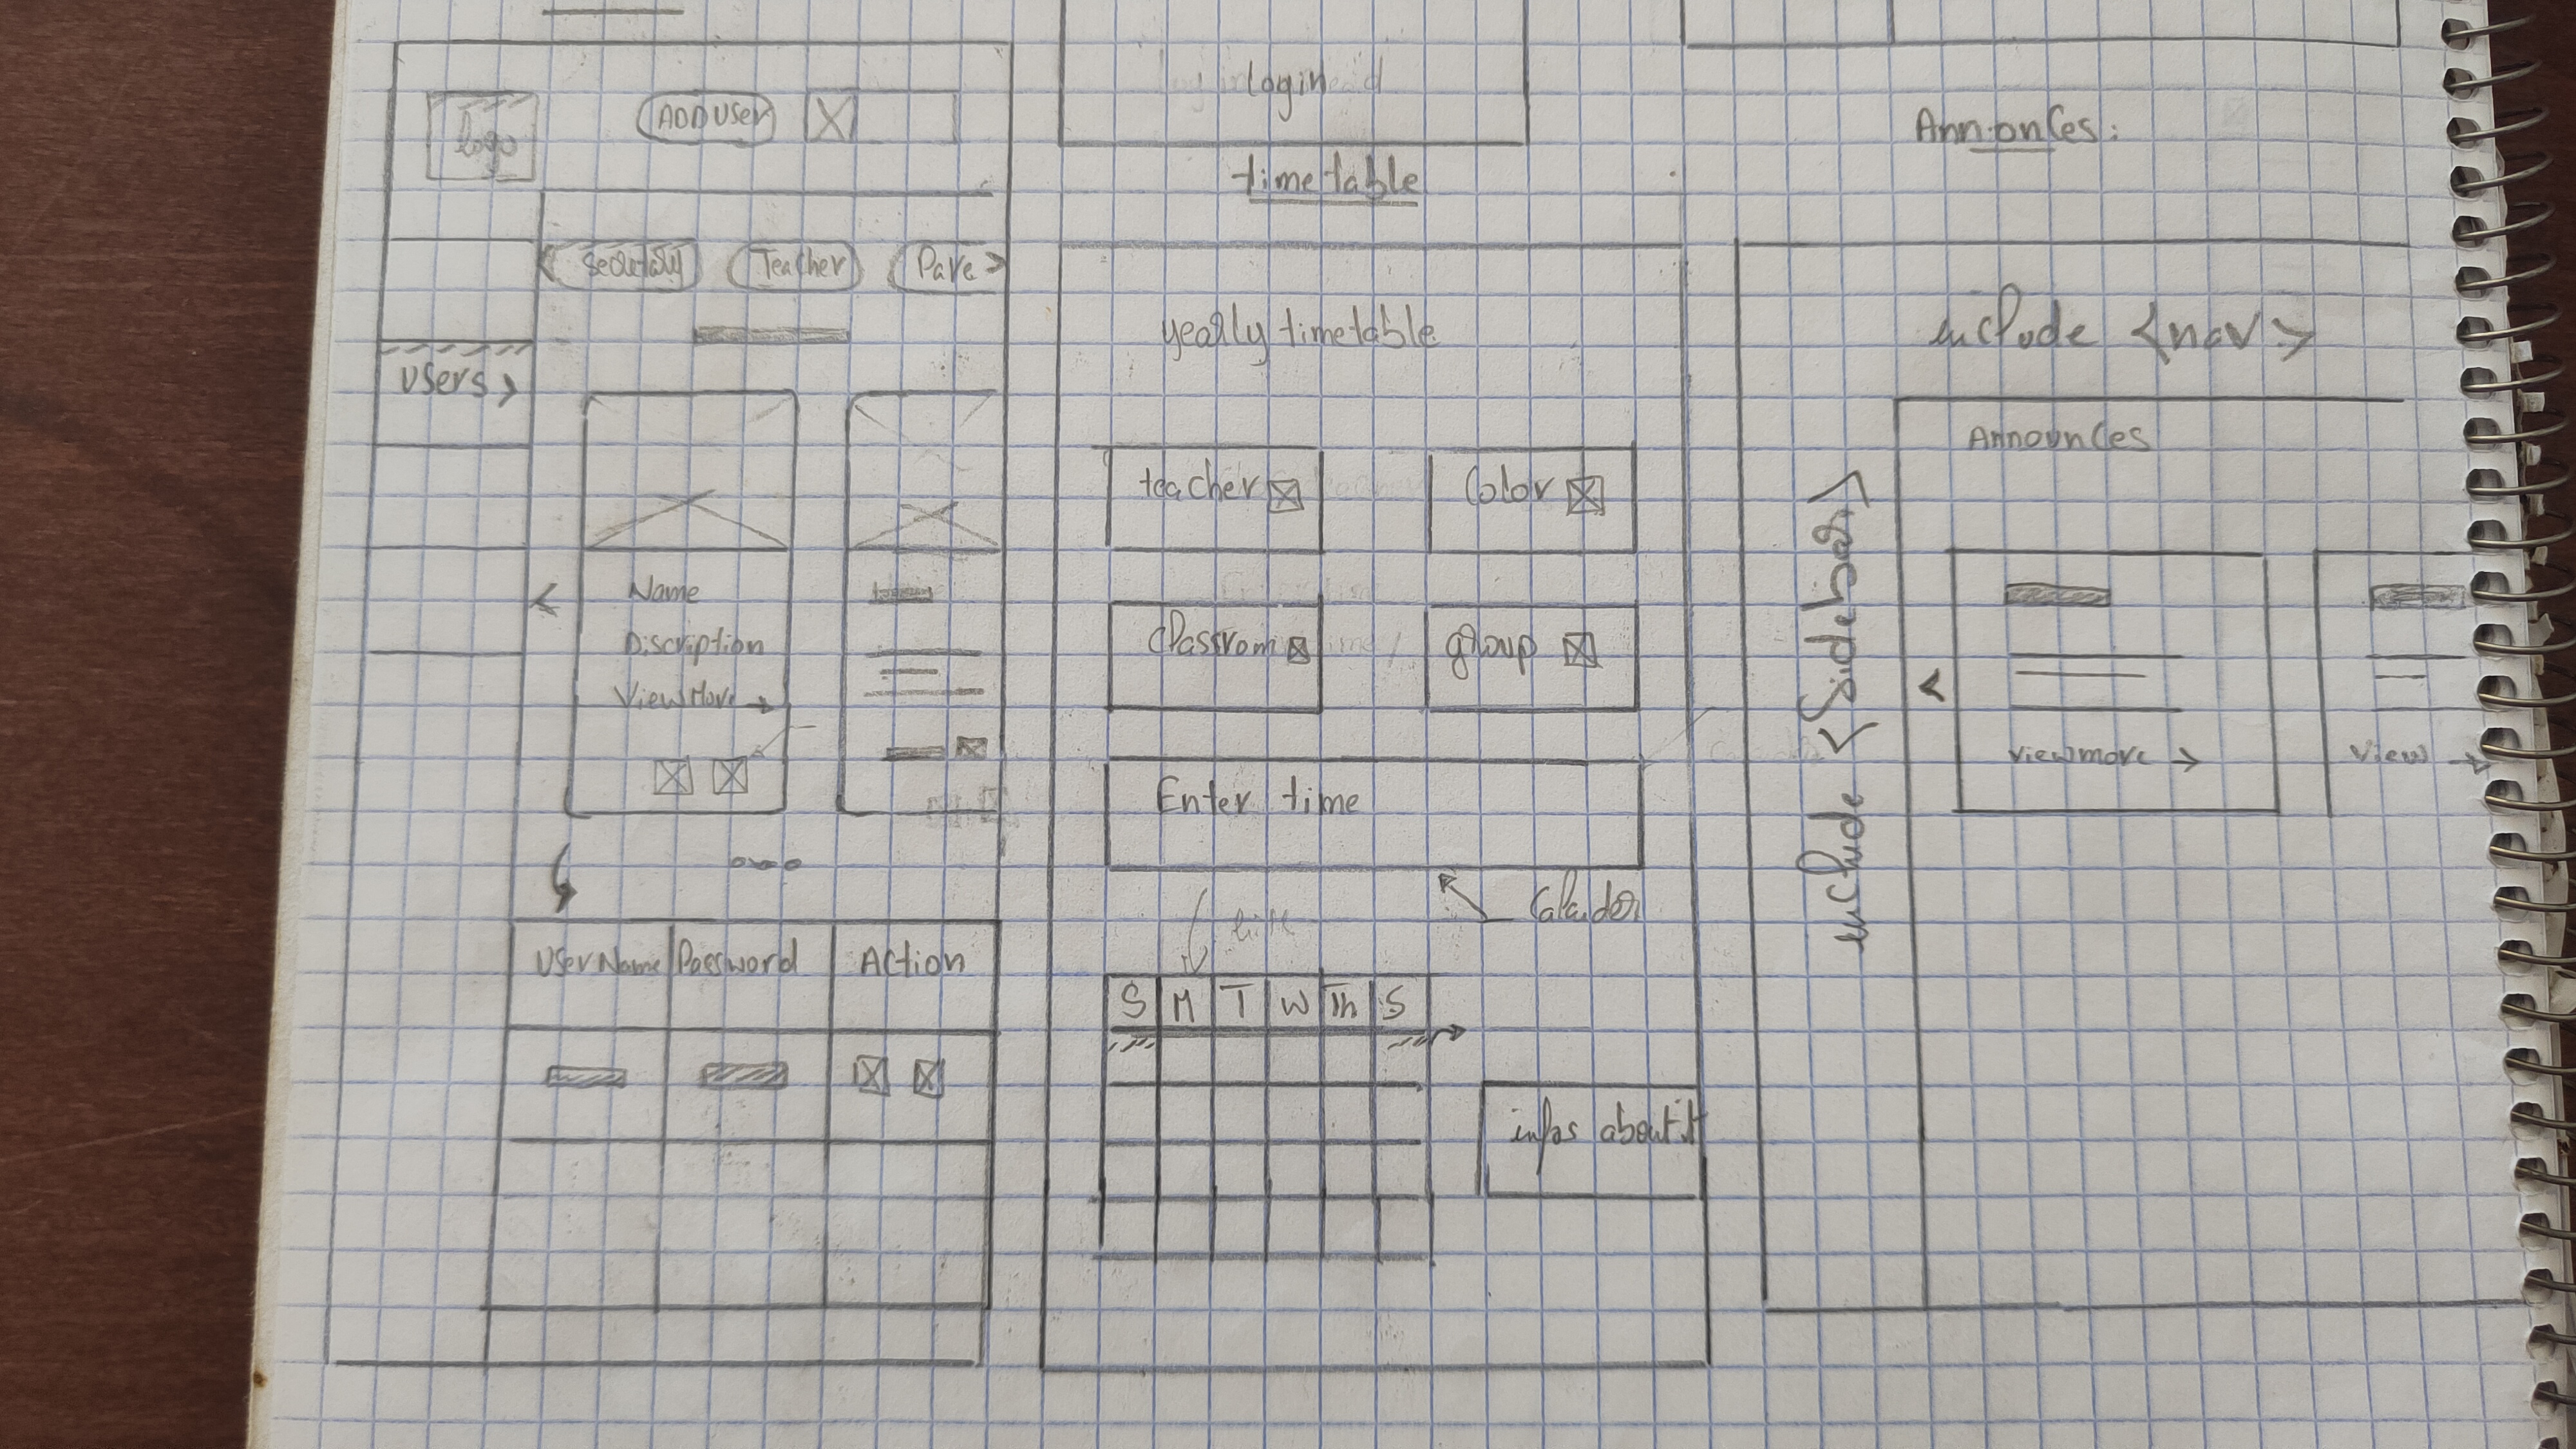 logo
ADD User
Secretary
Teacher
Pare >
Users >
<
Name
Discription
View More →
UserName
Password
Action
login
time table
yearly timetable
teacher
Color
Classrom
group
Enter time
Calander
S M T W Th S
infos about it
Annonces:
include <nav>
include <Sidebar>
Announces
<
view more →
View →